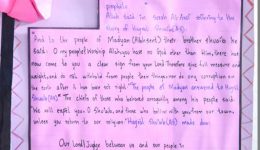 prophets
Allah said in Surah Al-Araf referring to the
story of Hazrat Shoaib(AS)
And to the people of Madyan (Midian) their brother
said: O my people! Worship Allah, you have no God other than Him, there has
now come to you a clear sign from your Lord Therefore give full measure and
weight, and do not withhold from people their things and do no any corruption on
the earth after it has been set right. "The people of Madyan
Shoaib(AS)" The chiefs of those who behaved arrogantly among his people said
"We will expel you O Shoaib, and those who believe with you from our town
unless you return to our religion" Hazrat Shoaib(AS) made dua:
Our Lord! Judge between us and our people in